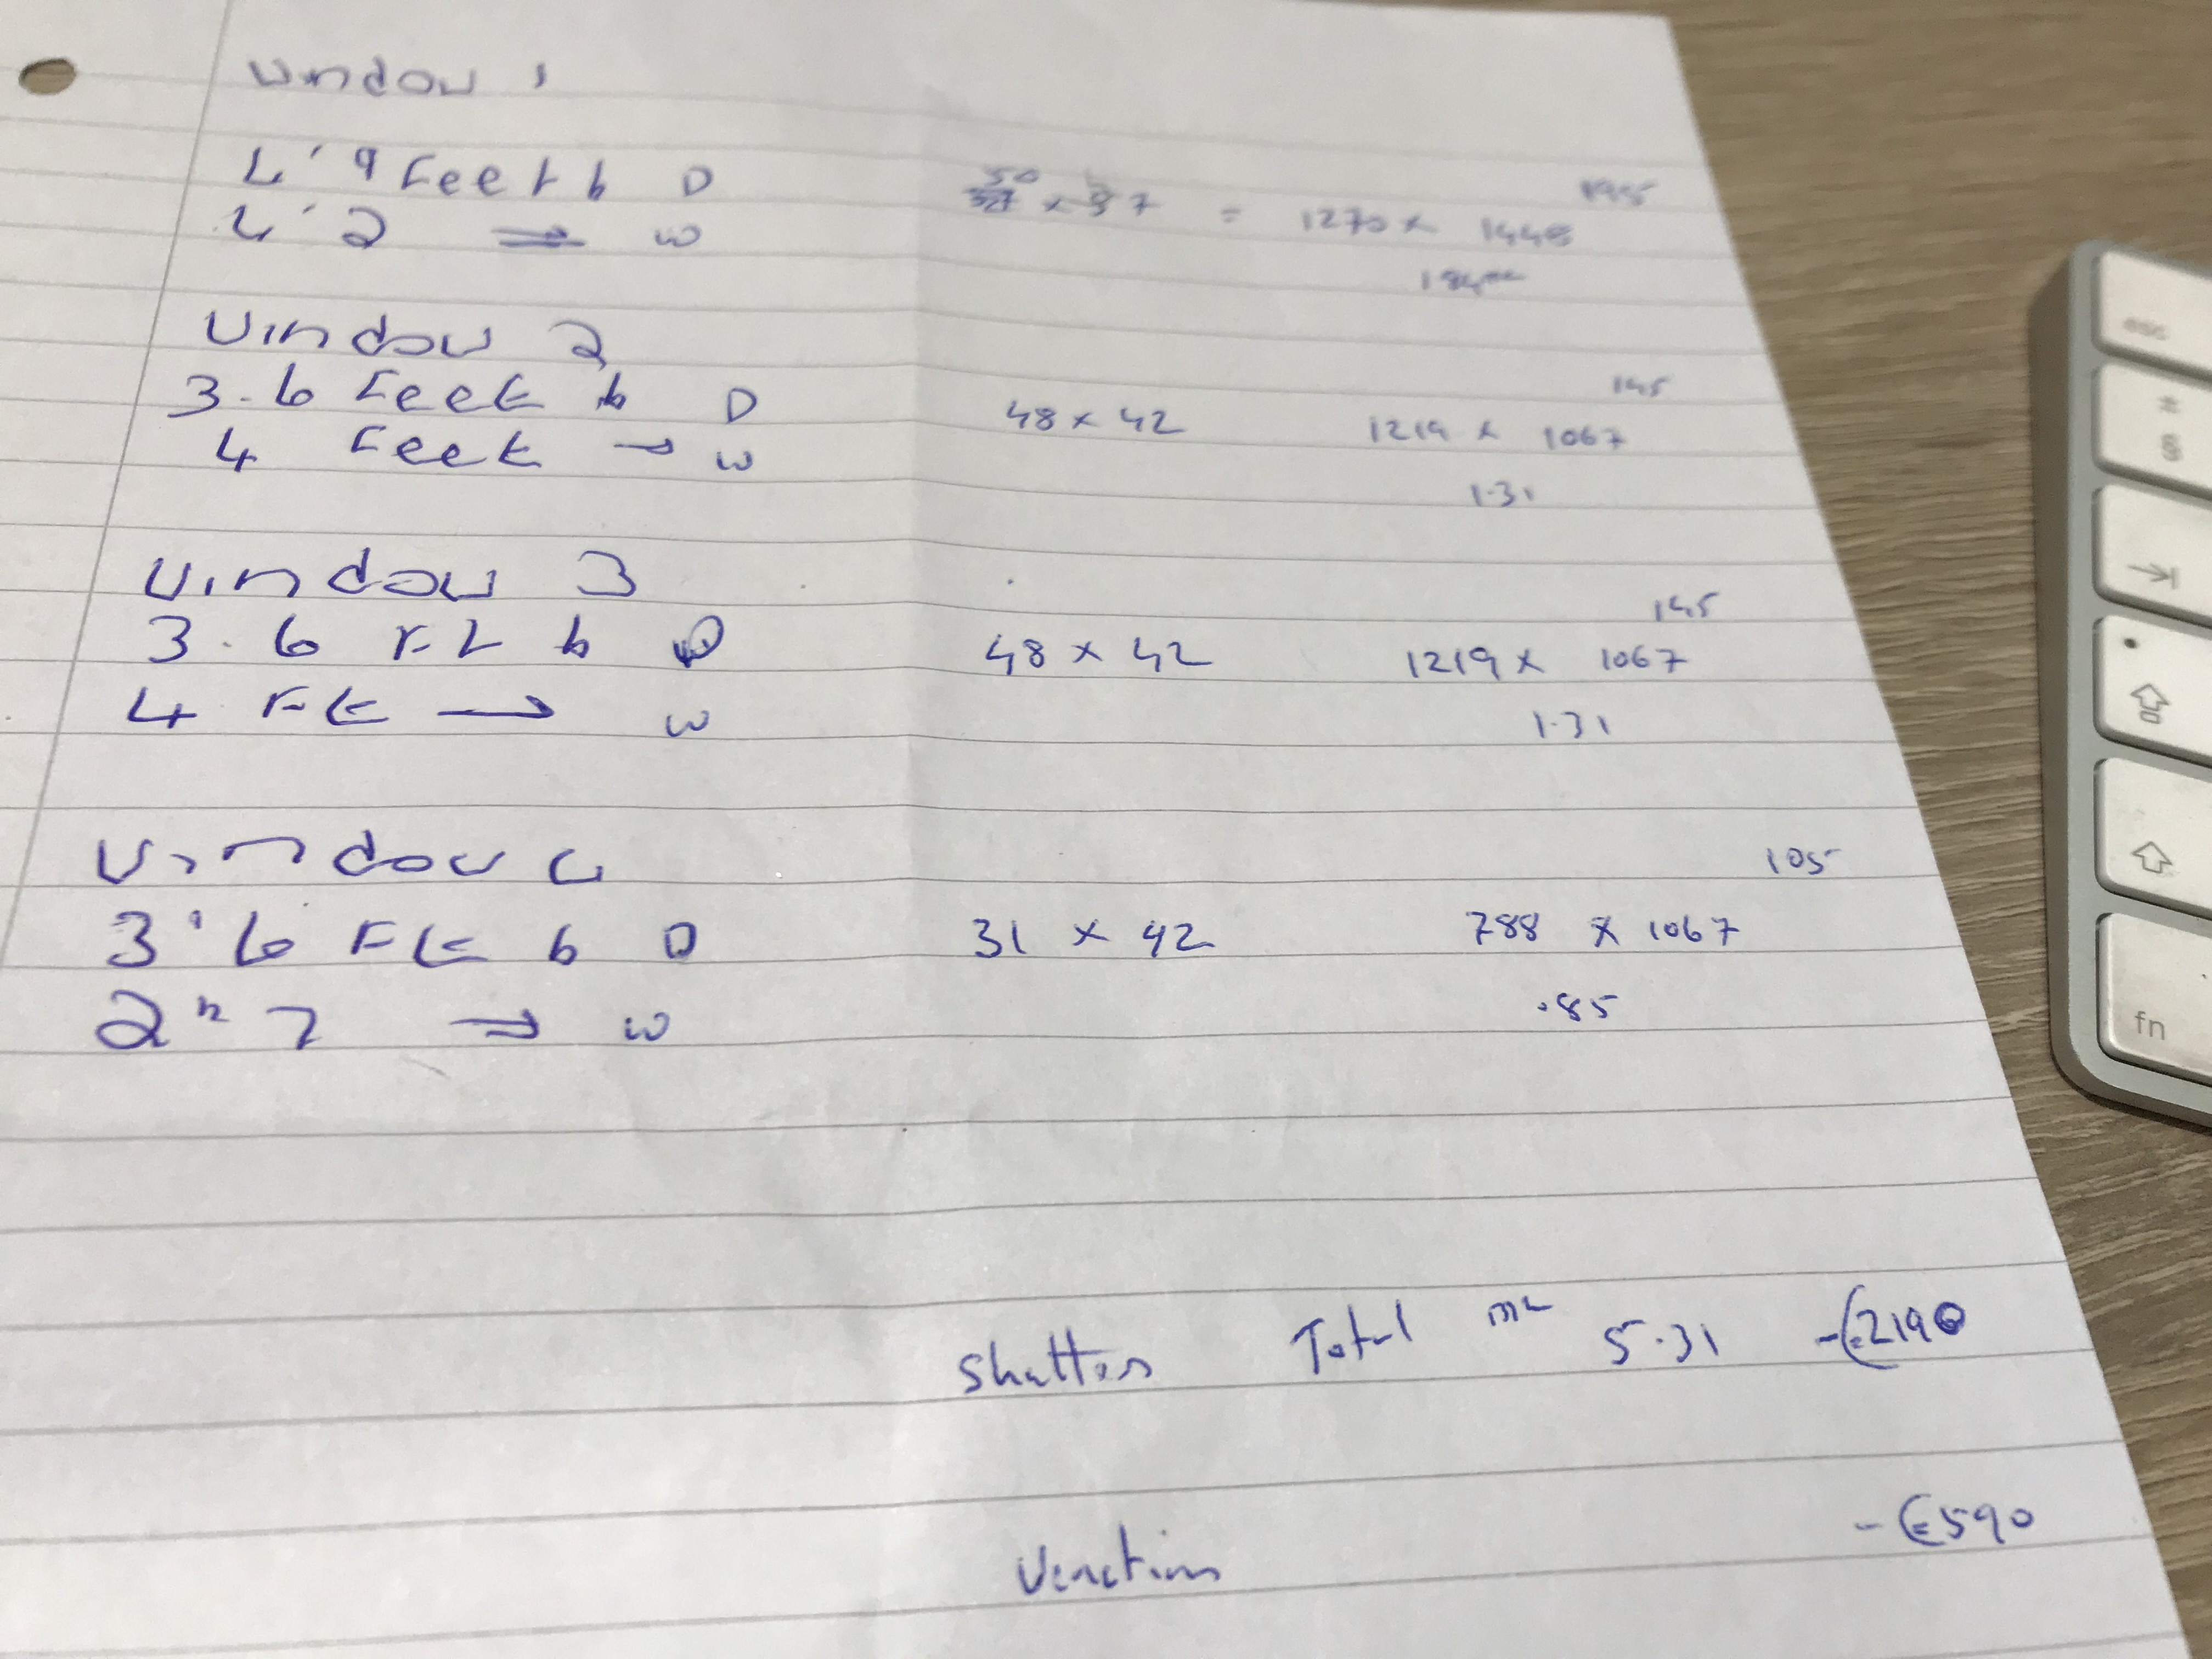 Window 1
4' 9 Feet b D
50 x 57 = 1270 x 1448 195
4' 2 → w
1.84
Window 2
3.6 Feet b D 48 x 42 1219 x 1067 145
4 Feet → w
1.31
Window 3
3.6 Ft b D 48 x 42 1219 x 1067 145
4 Ft → w 1.31
Window 4
105
3'6 Ft b D 31 x 42 788 x 1067
2" 7 → w .85
Shutters Total m2 5.31 - €2190
Venetians - €590
esc
#
§
fn